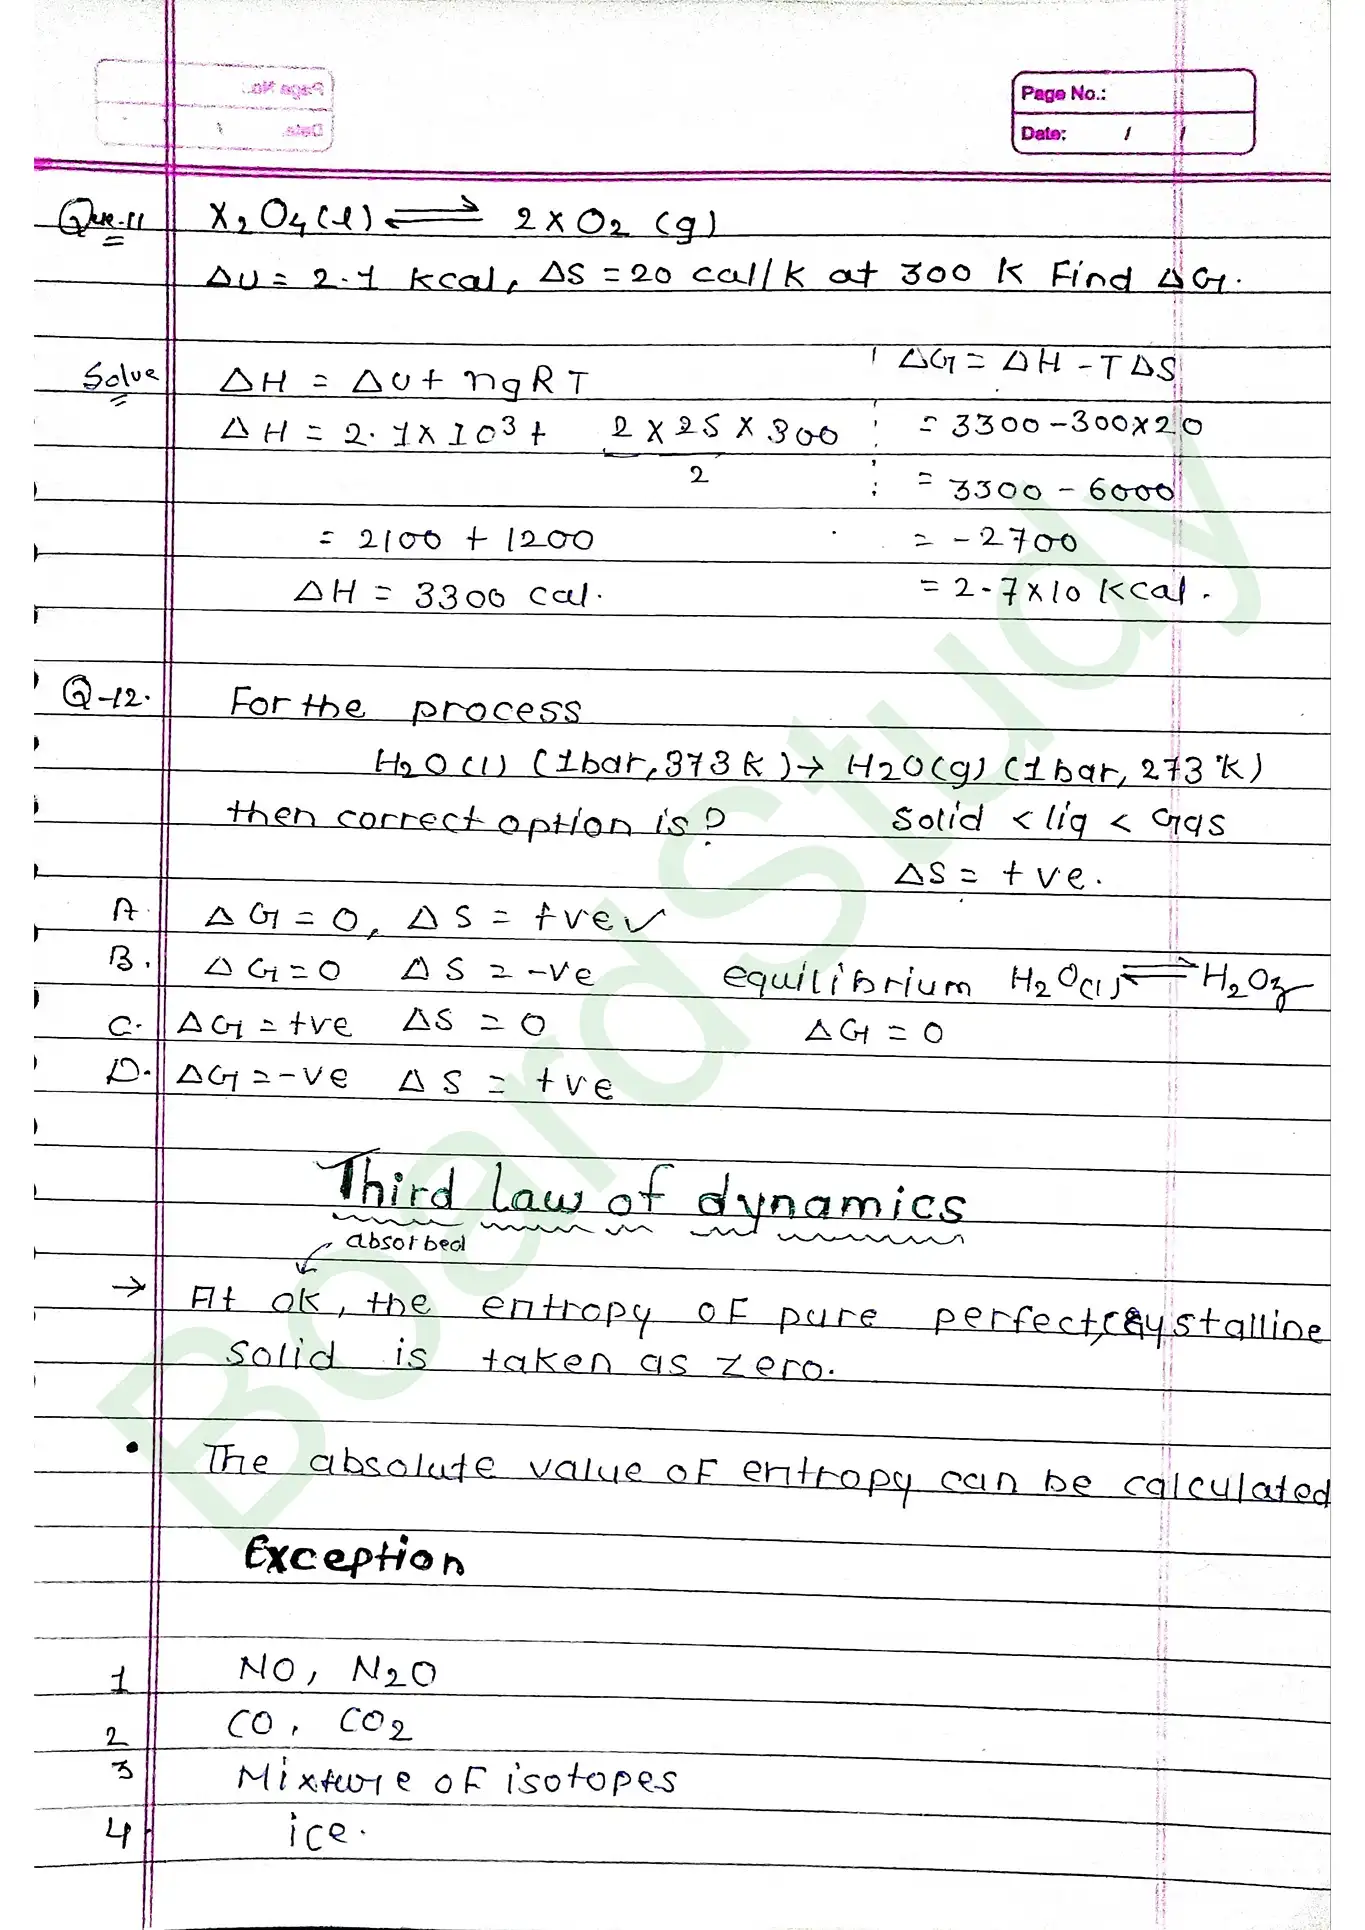 Page No.:
Date: / /
Que-11 X2O4(l) ⇌ 2XO2 (g)
ΔU = 2.1 kcal, ΔS = 20 cal/k at 300 K Find ΔG.
Solve ΔH = ΔU + ngRT
ΔH = 2.1 x 10³ + 2 x 25 x 300 / 2
= 2100 + 1200
ΔH = 3300 cal.
ΔG = ΔH - TΔS
= 3300 - 300 x 20
= 3300 - 6000
= -2700
= 2.7 x 10 Kcal.
Q-12. For the process
H2O(l) (1bar, 373 k) → H2O(g) (1 bar, 273°K)
then correct option is?
Solid < liq < Gas
ΔS = +ve.
A. ΔG = 0, ΔS = +ve ✓
B. ΔG = 0 ΔS = -ve
C. ΔG = +ve ΔS = 0
D. ΔG = -ve ΔS = +ve
equilibrium H2O(l) ⇌ H2O
ΔG = 0
Third law of dynamics
absorbed
→ At 0K, the entropy of pure perfect, crystalline
solid is taken as zero.
• The absolute value of entropy can be calculated
Exception
1 NO, N2O
2 CO, CO2
3 Mixture of isotopes
4. ice.
BoardStudy